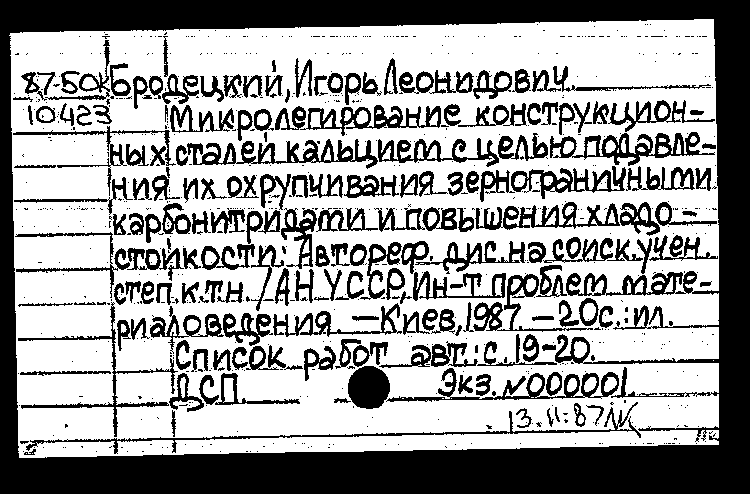 87-50к Бродецкий, Игорь Леонидович.
10423 Микролегирование конструкцион-
ных сталей кальцием с целью подавле-
ния их охрупчивания зернограничными
карбонитридами и повышения хладо-
стойкости: Автореф. дис. на соиск. учен.
степ. к.т.н. / АН УССР, Ин-т проблем мате-
риаловедения. — Киев, 1987. — 20с.: ил.
Список работ авт.: с. 19-20.
ДСП. Экз. N000001.
13.11.87